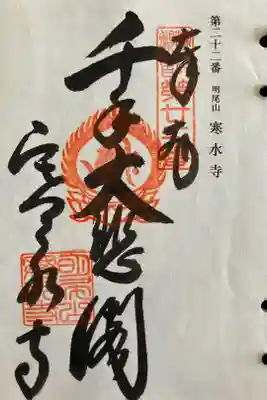 第二十二番 明尾山 寒水寺
奉拝
千手大悲閣
寒水寺